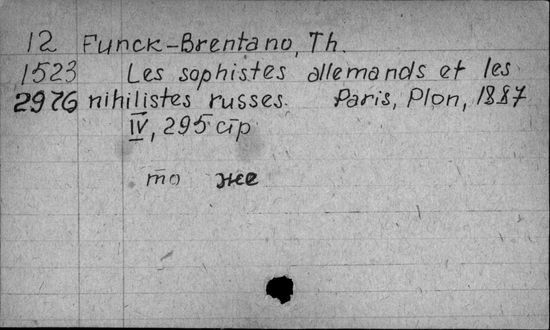 12 Funck-Brentano, Th.
1523 Les sophistes allemands et les
2976 nihilistes russes. Paris, Plon, 1887
IV, 295 стр
то же